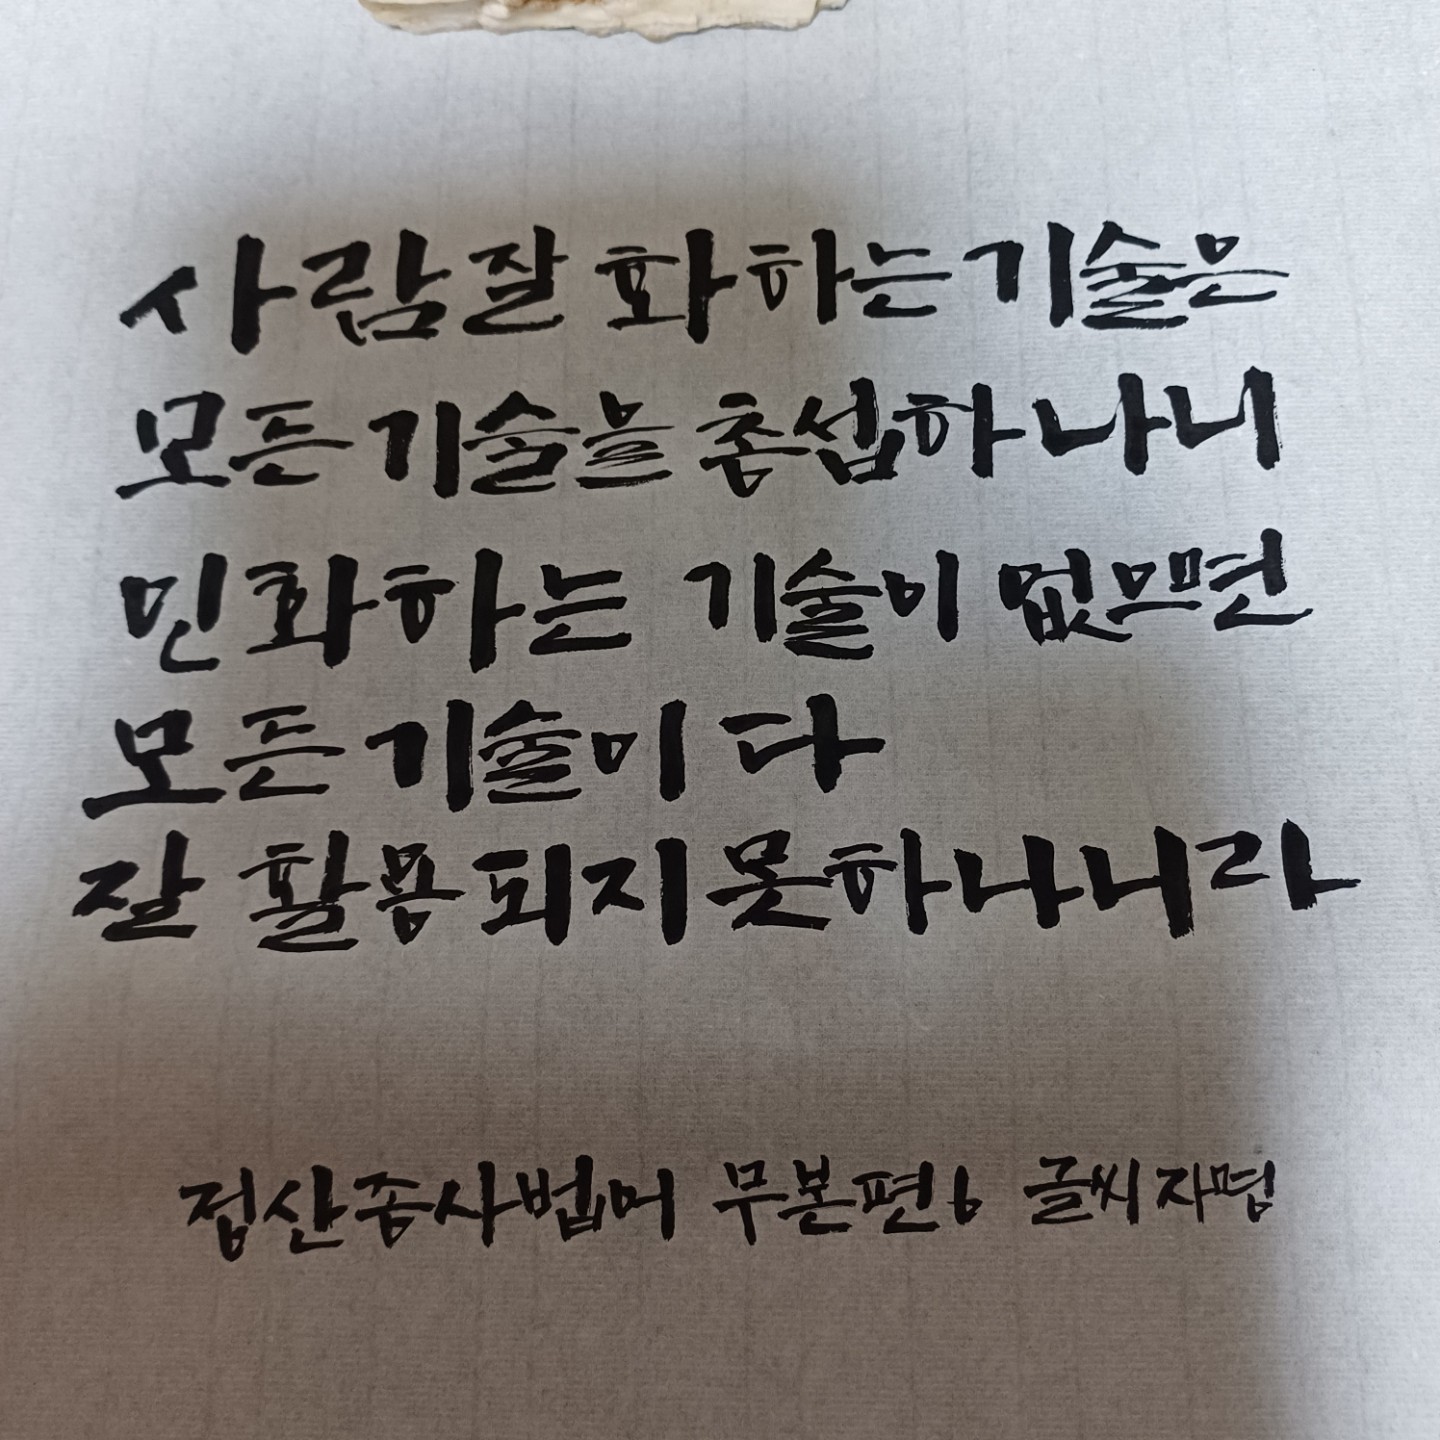 사람 잘 화 하는 기술은
모든 기술을 총섭하나니
인화하는 기술이 없으면
모든 기술이 다
잘 활용되지 못하나니라
정산종사법어 무본편6 글씨 자명